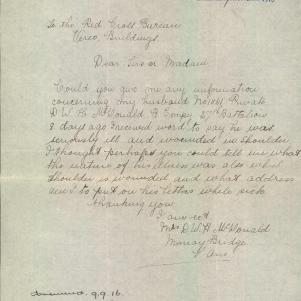 To the Red Cross Bureau
Verco Buildings
Dear Sir or Madam
Could you give me any information
concerning my husband No 1861 Private
D W H McDonald G Compy 27th Battalion
8 days ago I received word to say he was
seriously ill and wounded in shoulder
I thought perhaps you could tell me what
the nature of his illness was also which
shoulder is wounded and what address
am I to put on his letters while sick
thanking you
I am
Mrs D. W. H. McDonald
Murray Bridge
S Aus
Answered 9.9.16.